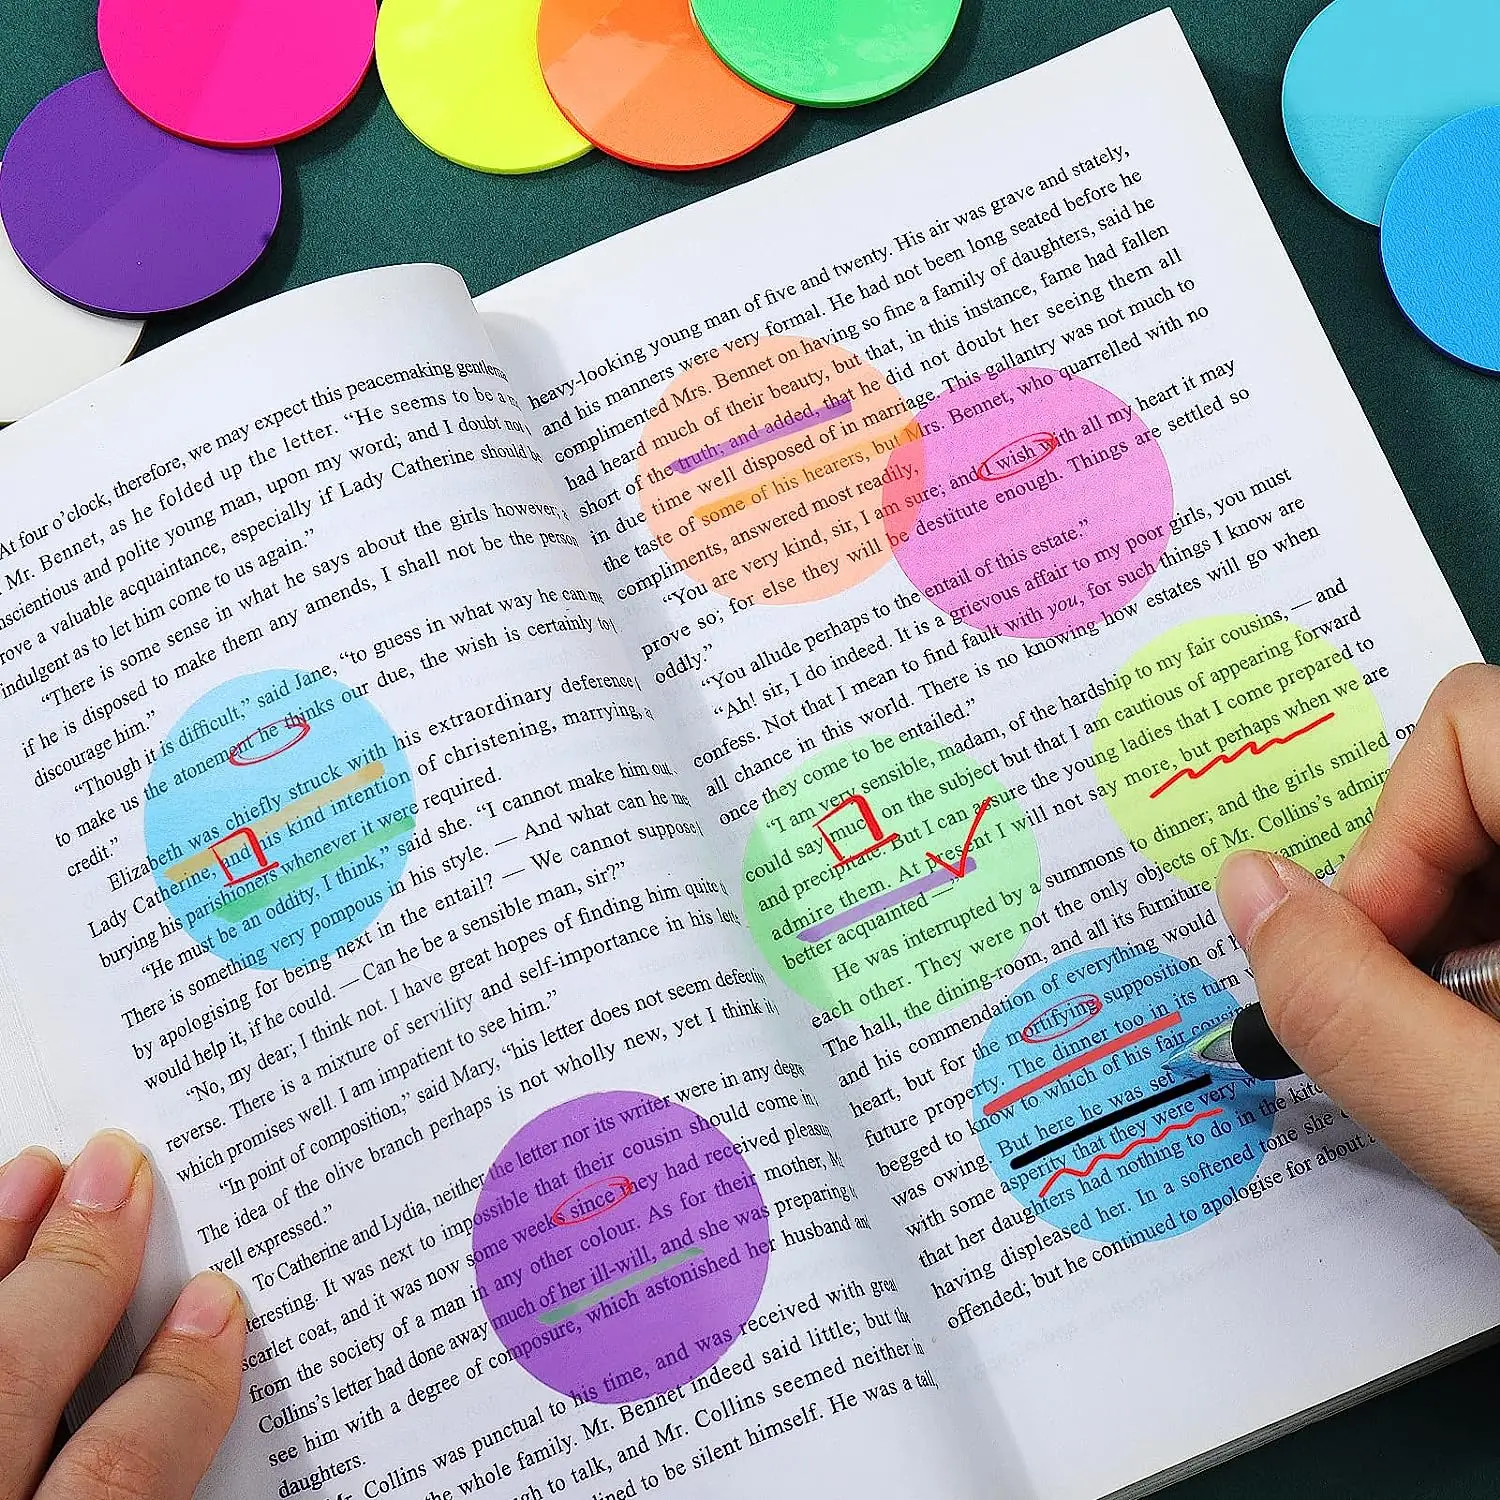 At four o'clock, therefore, we may expect this peacemaking
Mr. Bennet, as he folded up the letter. "He seems to be a
and polite young man, upon my word; and I doubt not
a valuable acquaintance, especially if Lady Catherine should be
indulgent as to let him come to us again."
"There is some sense in what he says about the girls however;
if he is disposed to make them any amends, I shall not be the person
discourage him."
"Though it is difficult," said Jane, "to guess in what way he can
to make us the atonement he thinks our due, the wish is certainly to
credit."
Elizabeth was chiefly struck with his extraordinary deference
Lady Catherine, and his kind intention of christening, marrying,
burying his parishioners whenever it were required.
"He must be an oddity, I think," said she. "I cannot make him out.
There is something very pompous in his style. — And what can he
by apologising for being next in the entail? — We cannot suppose
would help it, if he could. — Can he be a sensible man, sir?"
"No, my dear; I think not. I have great hopes of finding him quite
reverse. There is a mixture of servility and self-importance in his
which promises well. I am impatient to see him."
"In point of composition," said Mary, "his letter does not seem
The idea of the olive branch perhaps is not wholly new, yet I think it
well expressed."
To Catherine and Lydia, neither the letter nor its writer were in any
It was next to impossible that their cousin should come in
scarlet coat, and it was now some weeks since they had received
from the society of a man in any other colour. As for their mother,
Collins's letter had done away much of her ill-will, and she was preparing
see him with a degree of composure, which astonished her husband and
daughters.
Collins was punctual to his time, and was received with great
the whole family. Mr. Bennet indeed said little; but the
to talk, and Mr. Collins seemed neither in
to be silent himself. He was a tall,
heavy-looking young man of five and twenty. His air was grave and stately,
and his manners were very formal. He had not been long seated before he
complimented Mrs. Bennet on having so fine a family of daughters, said he
had heard much of their beauty, but that, in this instance, fame had fallen
short of the truth; and added, that he did not doubt her seeing them all
in due time well disposed of in marriage. This gallantry was not much to
the taste of some of his hearers, but Mrs. Bennet, who quarrelled with no
compliments, answered most readily,
"You are very kind, sir, I am sure; and I wish with all my heart it may
prove so; for else they will be destitute enough. Things are settled so
oddly."
"You allude perhaps to the entail of this estate."
"Ah! sir, I do indeed. It is a grievous affair to my poor girls, you must
confess. Not that I mean to find fault with you, for such things I know are
all chance in this world. There is no knowing how estates will go when
once they come to be entailed."
"I am very sensible, madam, of the hardship to my fair cousins, — and
could say much on the subject but that I am cautious of appearing forward
and precipitate. But I can assure the young ladies that I come prepared to
admire them. At present I will not say more, but perhaps when we are
better acquainted —"
He was interrupted by a summons to dinner; and the girls smiled on
each other. They were not the only objects of Mr. Collins's
The hall, the dining-room, and all its furniture and
and his commendation of everything would
heart, but for the mortifying supposition of
future property. The dinner too in its turn
begged to know to which of his fair
was owing. But here he was set
with some asperity that they were very
that her daughters had nothing to do in the
having displeased her. In a softened tone she
offended; but he continued to apologise for about a